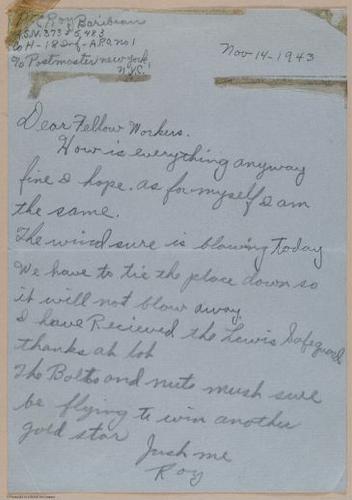 Pfc Roy Baribeau
A.S.N. 37385,483
Co H-18 Inf-A.P.O. no 1
c/o Postmaster new york,
N.Y.C.
Nov-14-1943
Dear Fellow Workers.
How is everything anyway
fine I hope. as for myself I am
the same.
The wind sure is blowing today
We have to tie the place down so
it will not blow away.
I have Recieved the Lewis Safeguard
thanks ah lot
The Bolts and nuts mush sure
be flying to win another
gold star
Jush me
Roy